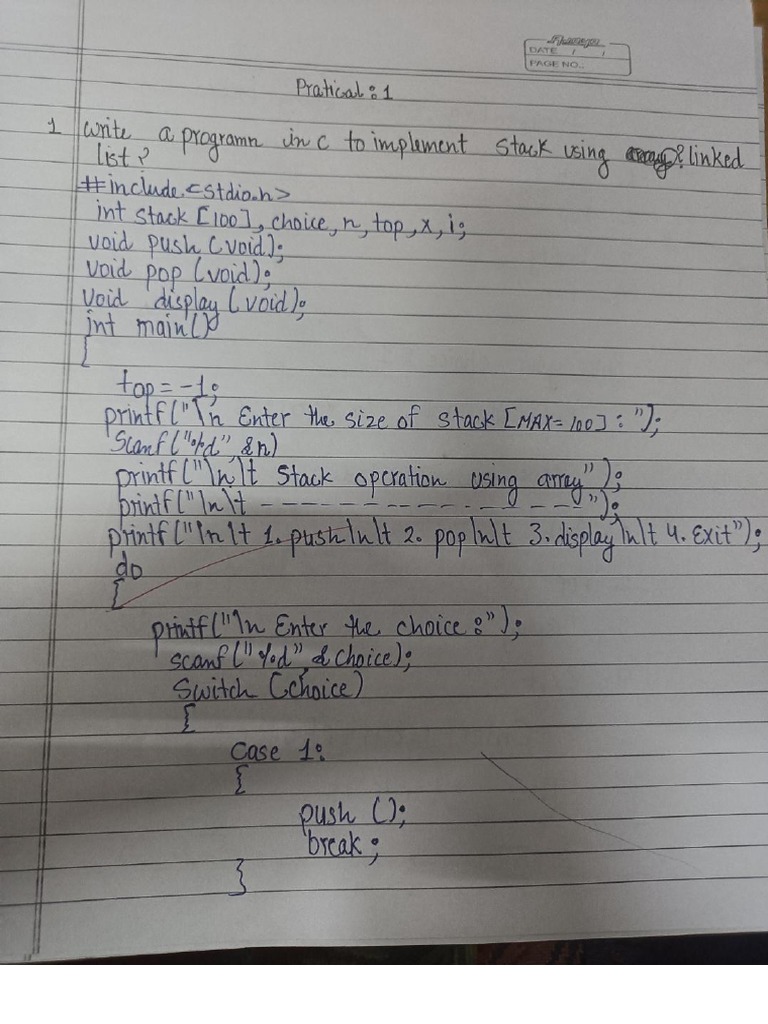 DATE / /
PAGE NO.:
Pratical: 1
1 Write a programn in c to implement stack using array? linked
list?
#include<stdio.h>
int stack [100], choice, n, top, x, i;
void push (void);
void pop (void);
void display (void);
int main()
{
top = -1;
printf("\n Enter the size of stack [MAX=100] : ");
Scanf("%d", &n)
printf("\n\t Stack operation using array");
printf("\n\t - - - - - - - - - - - - - - - - -");
printf("\n\t 1. push\n\t 2. pop\n\t 3. display\n\t 4. Exit");
do
{
printf("\n Enter the choice :");
scanf("%d", &choice);
Switch (choice)
{
Case 1:
{
push ();
break;
}